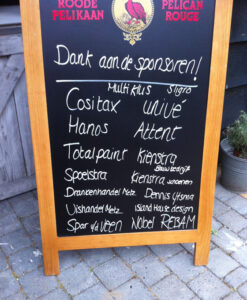 ROODE PELICAN
PELIKAAN ROUGE
Dank aan de sponsoren!
Multi Klus Sligro
Cositax univé
Hanos Attent
Totalpaint Kienstra
Bouwbedrijf
Spoelstra Kienstra schoenen
Drankenhandel Metz Dennis
Vishandel Metz Island House design
Spar v/d Veen Nobel REBAM